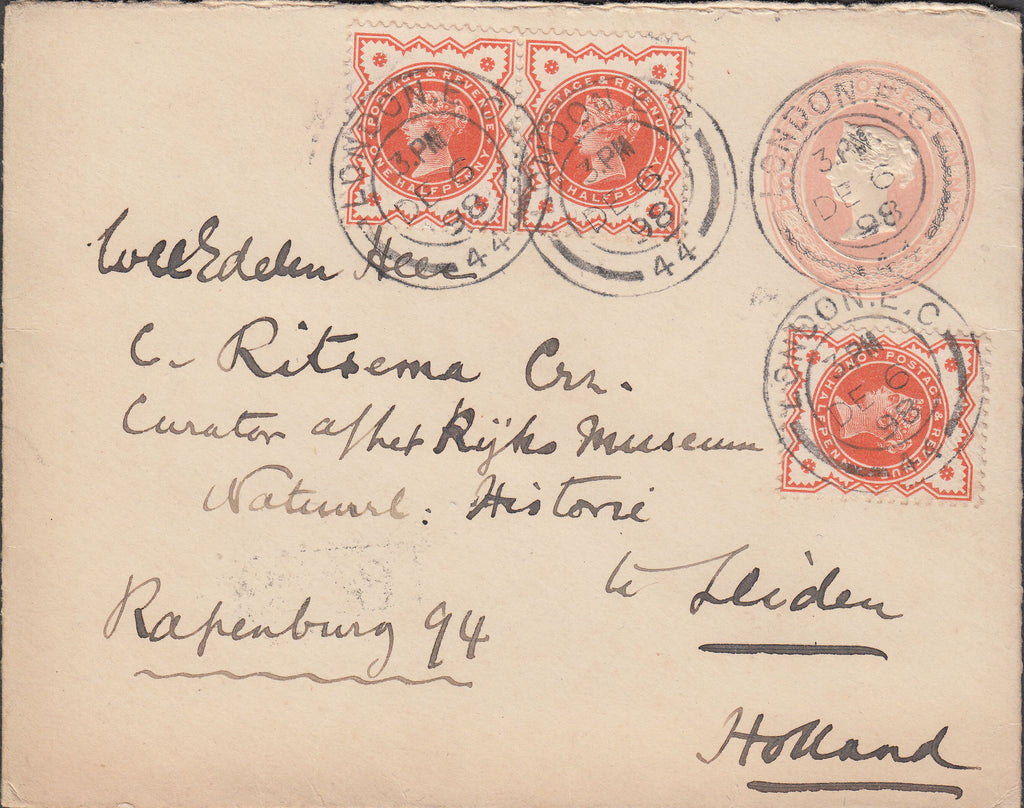 POSTAGE & REVENUE
ONE HALFPENNY
POSTAGE & REVENUE
HALFPENNY
LONDON.E.C
3.PM
DE 6
98
44
LONDON.E.C
3.PM
DE 6
98
44
LONDON.E.C
3.PM
DE 6
98
44
WelEdelen Heer
C. Ritsema Crz.
Curator a/h het Rijks Museum
Natuurl. Historie
te Leiden
Rapenburg 94
Holland
LONDON.E.C.
3.PM
DE 6
98
44
POSTAGE & REVENUE
HALFPENNY